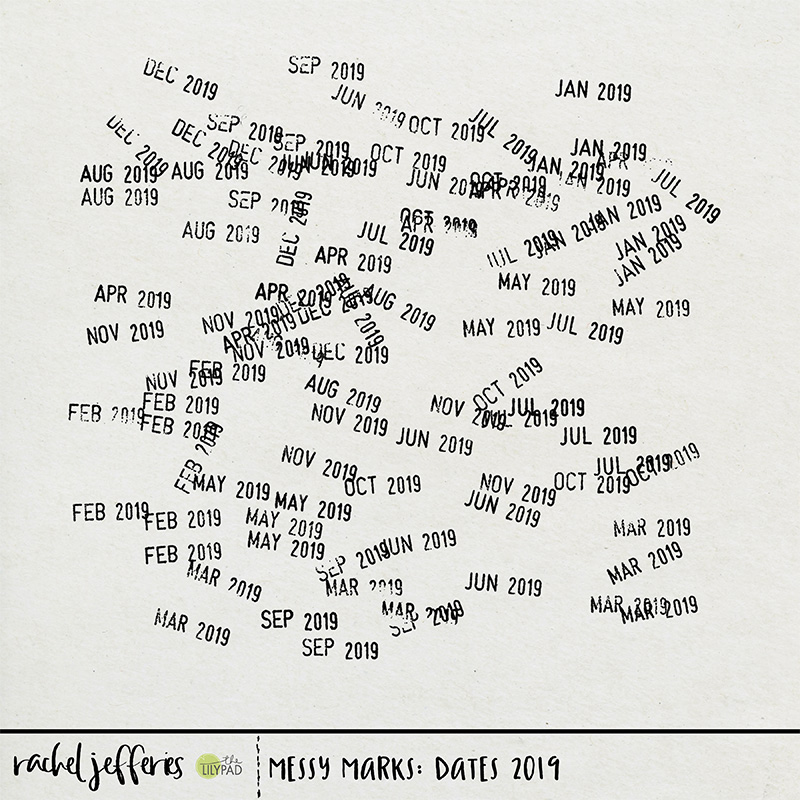 SEP 2019
DEC 2019
JAN 2019
JUN 2019
OCT 2019
JUL 2019
DEC 2019
DEC 2019
SEP 2019
SEP 2019
JAN 2019
DEC 2019
JUN 2019
OCT 2019
JAN 2019
APR
AUG 2019
AUG 2019
JUN 2019
OCT 2019
APR 2019
JAN 2019
JUL 2019
AUG 2019
SEP 2019
DEC 2019
JAN 2019
OCT 2019
APR 2019
AUG 2019
JUL 2019
JUL 2019
JAN 2019
JAN 2019
JAN 2019
APR 2019
MAY 2019
APR 2019
APR 2019
DEC 2019
AUG 2019
MAY 2019
NOV 2019
NOV 2019
APR 2019
DEC 2019
MAY 2019
JUL 2019
NOV 2019
DEC 2019
NOV 2019
FEB 2019
AUG 2019
OCT 2019
FEB 2019
FEB 2019
FEB 2019
NOV 2019
NOV 2019
JUL 2019
JUL 2019
JUN 2019
JUL 2019
FEB 2019
NOV 2019
JUL 2019
OCT 2019
MAY 2019
OCT 2019
NOV 2019
OCT 2019
FEB 2019
FEB 2019
MAY 2019
MAY 2019
JUN 2019
MAR 2019
FEB 2019
MAY 2019
SEP 2019
JUN 2019
MAR 2019
MAR 2019
MAR 2019
JUN 2019
MAR 2019
SEP 2019
MAR 2019
SEP 2019
MAR 2019
MAR 2019
SEP 2019
rachel jefferies the LILYPAD MESSY MARKS: DATES 2019